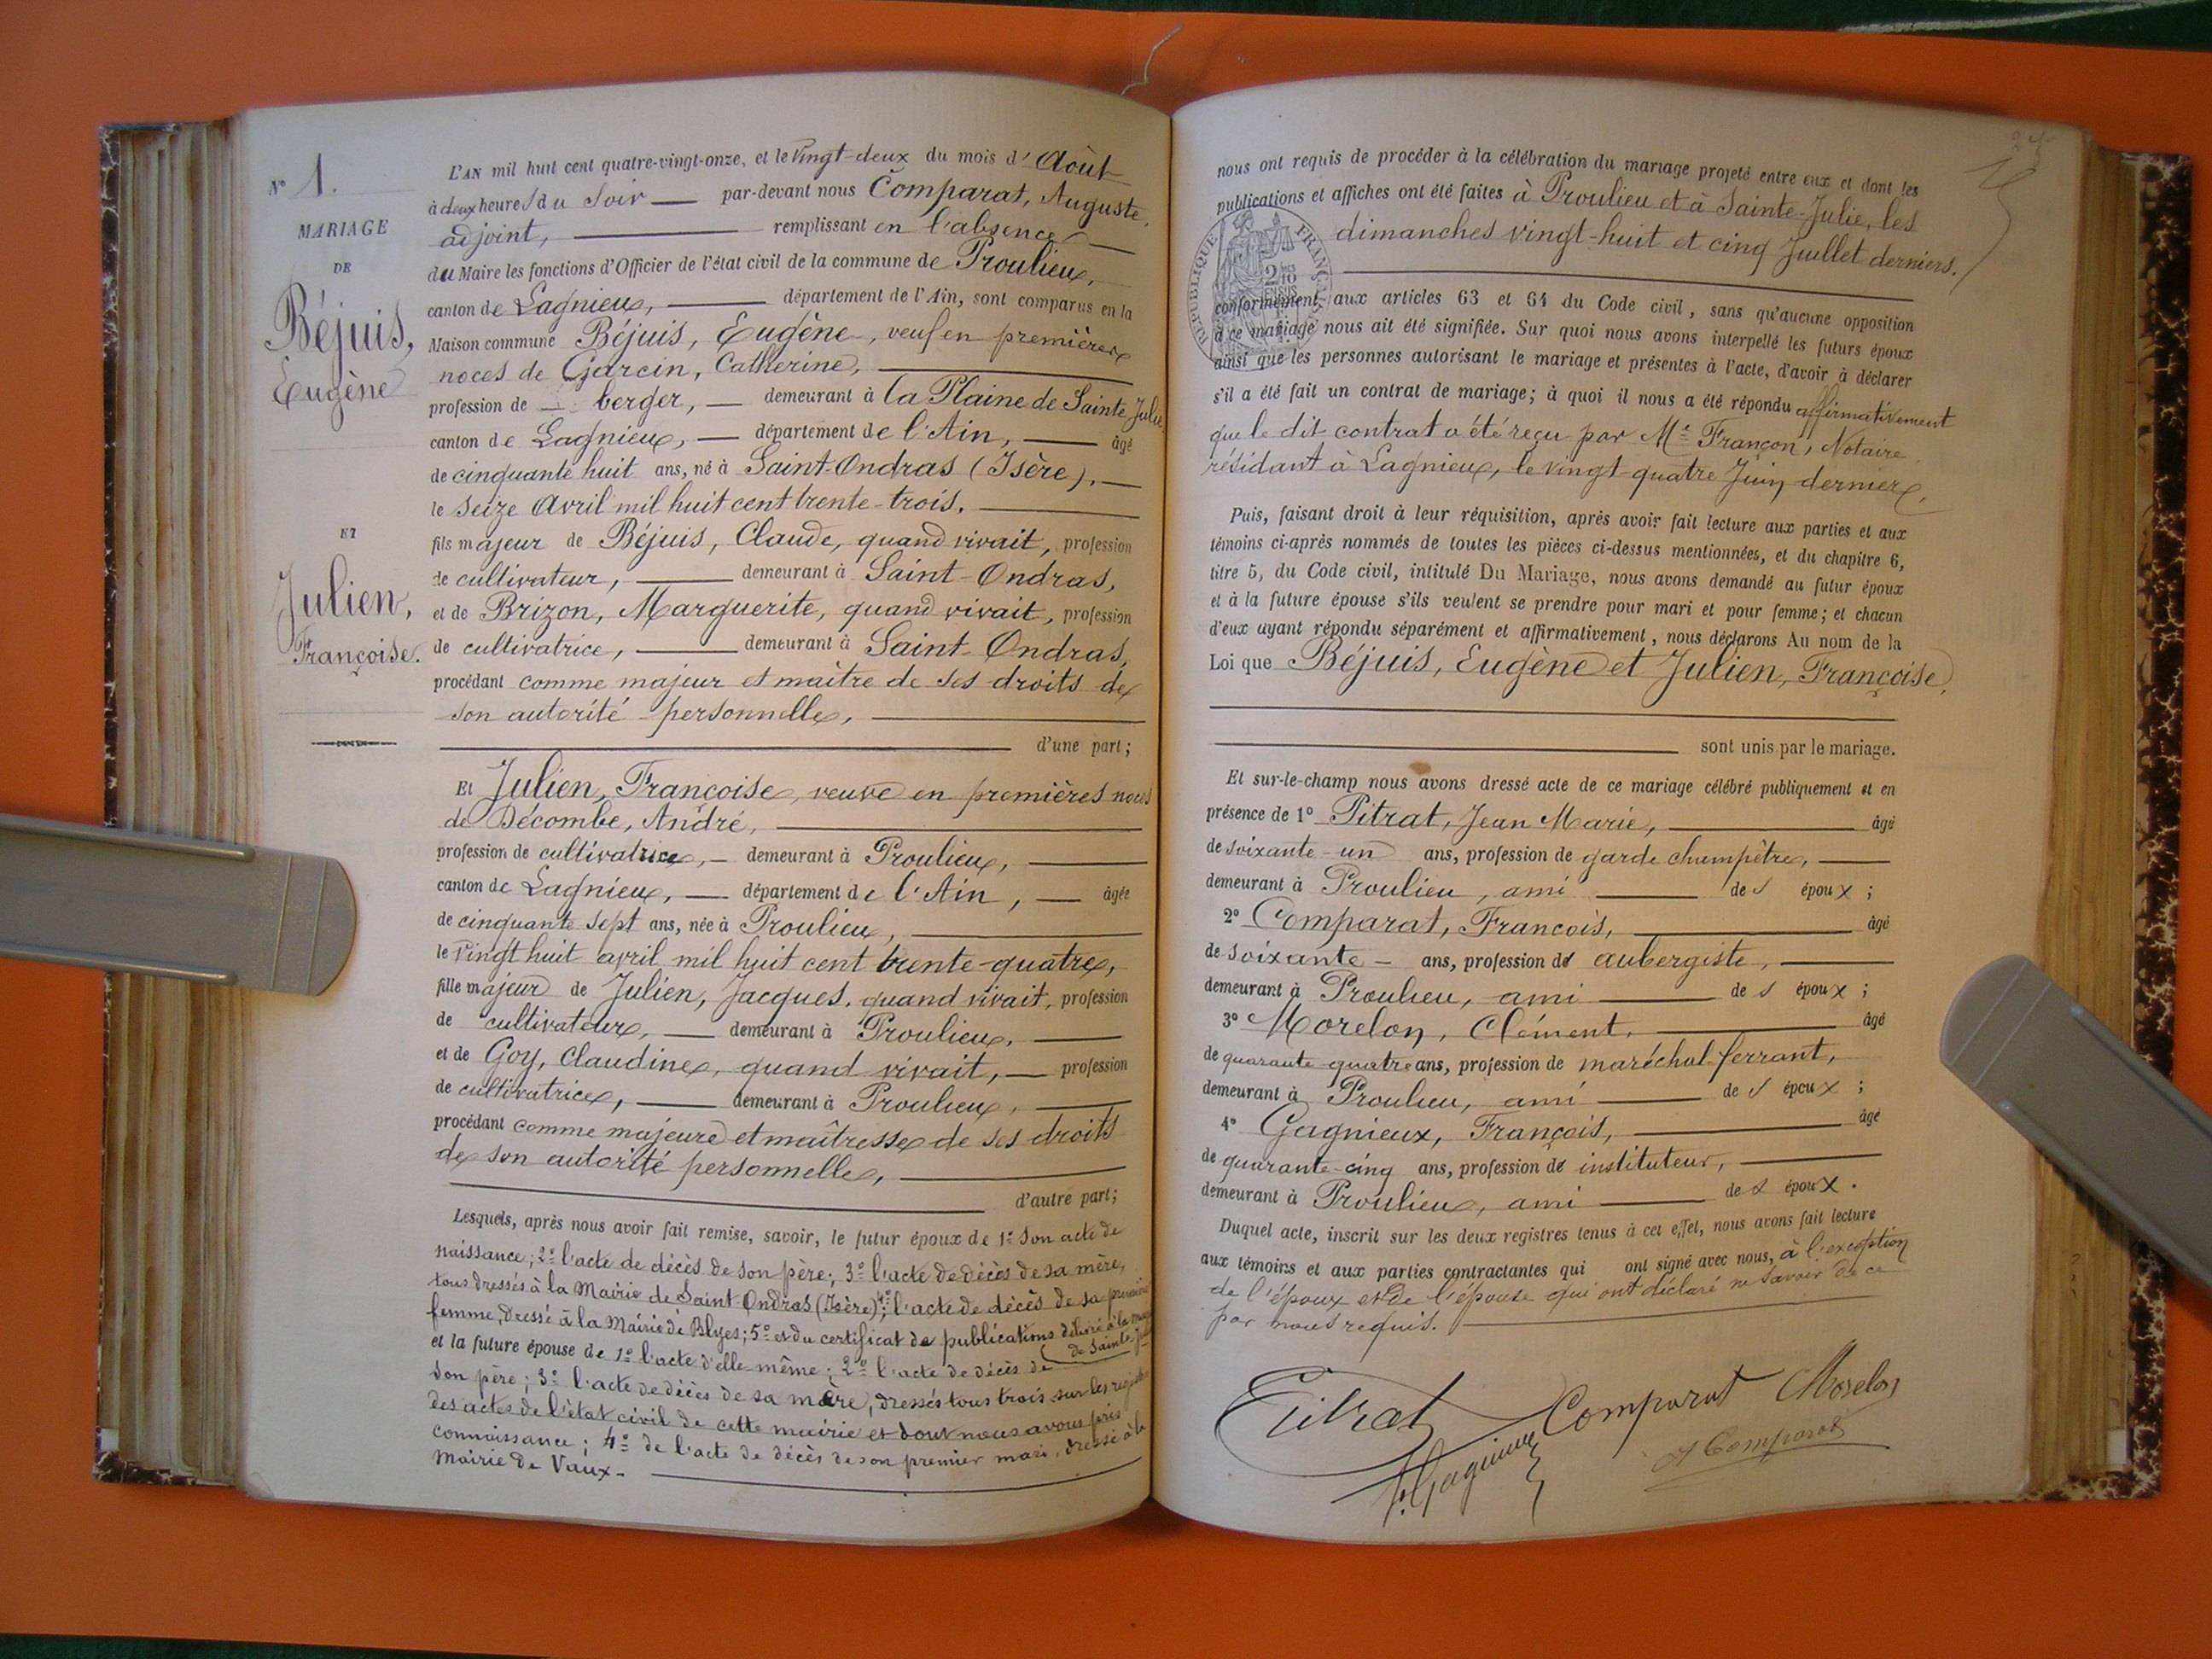 N° 1.
MARIAGE
DE
Béjuis,
Eugène
ET
Julien,
Françoise.
L'AN mil huit cent quatre-vingt-onze, et le Vingt-deux du mois d'Août
à deux heures du Soir — par-devant nous Comparat, Auguste,
adjoint, — remplissant en l'absence —
du Maire les fonctions d'Officier de l'état civil de la commune de Proulieu,
canton de Lagnieu, — département de l'Ain, sont comparus en la
Maison commune Béjuis, Eugène, veuf en premières
noces de Garcin, Catherine, —
profession de — berger, — demeurant à la Plaine de Sainte Julie
canton de Lagnieu, — département de l'Ain, — âgé
de cinquante huit ans, né à Saint-Ondras (Isère), —
le seize Avril mil huit cent trente-trois, —
fils majeur de Béjuis, Claude, quand vivait, profession
de cultivateur, — demeurant à Saint-Ondras,
et de Brizon, Marguerite, quand vivait, profession
de cultivatrice, — demeurant à Saint-Ondras,
procédant comme majeur et maître de ses droits de
son autorité personnelle, —
d'une part;
Et Julien, Françoise, veuve en premières noces
de Décombe, André, —
profession de cultivatrice, — demeurant à Proulieu, —
canton de Lagnieu, — département de l'Ain, — âgée
de cinquante sept ans, née à Proulieu, —
le Vingt huit avril mil huit cent trente-quatre,
fille majeur de Julien, Jacques, quand vivait, profession
de cultivateur, — demeurant à Proulieu, —
et de Goy, Claudine, quand vivait, — profession
de cultivatrice, — demeurant à Proulieu, —
procédant comme majeure et maîtresse de ses droits
de son autorité personnelle, —
d'autre part;
Lesquels, après nous avoir fait remise, savoir, le futur époux de 1° son acte de
naissance; 2° l'acte de décès de son père; 3° l'acte de décès de sa mère,
tous dressés à la Mairie de Saint-Ondras (Isère); 4° l'acte de décès de sa première
femme, dressé à la Mairie de Blyes; 5° et du certificat de publications délivré à la
de Sainte
et la future épouse de 1° l'acte d'elle-même; 2° l'acte de décès de
son père; 3° l'acte de décès de sa mère, dressés tous trois sur les registres
des actes de l'état civil de cette mairie et dont nous avons pris
connaissance; 4° de l'acte de décès de son premier mari, dressé à la
Mairie de Vaux. —
nous ont requis de procéder à la célébration du mariage projeté entre eux et dont les
publications et affiches ont été faites à Proulieu et à Sainte-Julie, les
dimanches vingt-huit et cinq Juillet derniers.
RÉPUBLIQUE FRANÇAISE
conformément aux articles 63 et 64 du Code civil, sans qu'aucune opposition
à ce mariage nous ait été signifiée. Sur quoi nous avons interpellé les futurs époux
ainsi que les personnes autorisant le mariage et présentes à l'acte, d'avoir à déclarer
s'il a été fait un contrat de mariage; à quoi il nous a été répondu affirmativement
que le dit contrat a été reçu par Me Françon, Notaire
résidant à Lagnieu, le vingt-quatre Juin dernier,
Puis, faisant droit à leur réquisition, après avoir fait lecture aux parties et aux
témoins ci-après nommés de toutes les pièces ci-dessus mentionnées, et du chapitre 6,
titre 5, du Code civil, intitulé Du Mariage, nous avons demandé au futur époux
et à la future épouse s'ils veulent se prendre pour mari et pour femme; et chacun
d'eux ayant répondu séparément et affirmativement, nous déclarons Au nom de la
Loi que Béjuis, Eugène et Julien, Françoise,
sont unis par le mariage.
Et sur-le-champ nous avons dressé acte de ce mariage célébré publiquement et en
présence de 1° Pitrat, Jean Marie, — âgé
de soixante-un ans, profession de garde champêtre, —
demeurant à Proulieu, ami — des époux;
2° Comparat, François, — âgé
de soixante — ans, profession d' aubergiste, —
demeurant à Proulieu, ami — des époux;
3° Morelon, Clément, — âgé
de quarante quatre ans, profession de maréchal-ferrant,
demeurant à Proulieu, ami — des époux;
4° Gagnieux, François, — âgé
de quarante-cinq ans, profession d' instituteur, —
demeurant à Proulieu, ami — des époux.
Duquel acte, inscrit sur les deux registres tenus à cet effet, nous avons fait lecture
aux témoins et aux parties contractantes qui ont signé avec nous, à l'exception
de l'époux et de l'épouse qui ont déclaré ne savoir de ce
par nous requis. —
Pitrat Comparat Morelon
F. Gagnieux A Comparat